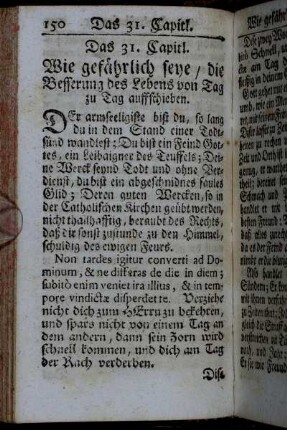 150 Das 31. Capitl.
Das 31. Capitl.
Wie gefährlich seye / die
Besserung des Lebens von Tag
zu Tag auffschieben.
DEr armseeligiste bist du, so lang
du in dem Stand einer Todt-
sünd wandlest; Du bist ein Feind Got-
tes, ein Leibaigner des Teuffels; Dei-
ne Werck seynd Todt und ohne Ver-
dienst, du bist ein abgeschnidnes faules
Glid; Deren guten Wercken, so in
der Catholischen Kirchen geübt werden,
nicht thailhafftig, beraubt des Rechts,
daß dir sonst zustunde zu den Himmel,
schuldig des ewigen Feurs.
Non tardes igitur converti ad Do-
minum, & ne differas de die in diem;
subitò enim veniet ira illius, & in tem-
pore vindictæ disperdet te. Verziehe
nicht dich zum HErrn zu bekehren,
und spars nicht von einem Tag an
dem andern, dann sein Zorn wird
schnell kommen, und dich am Tag
der Rach verderben.